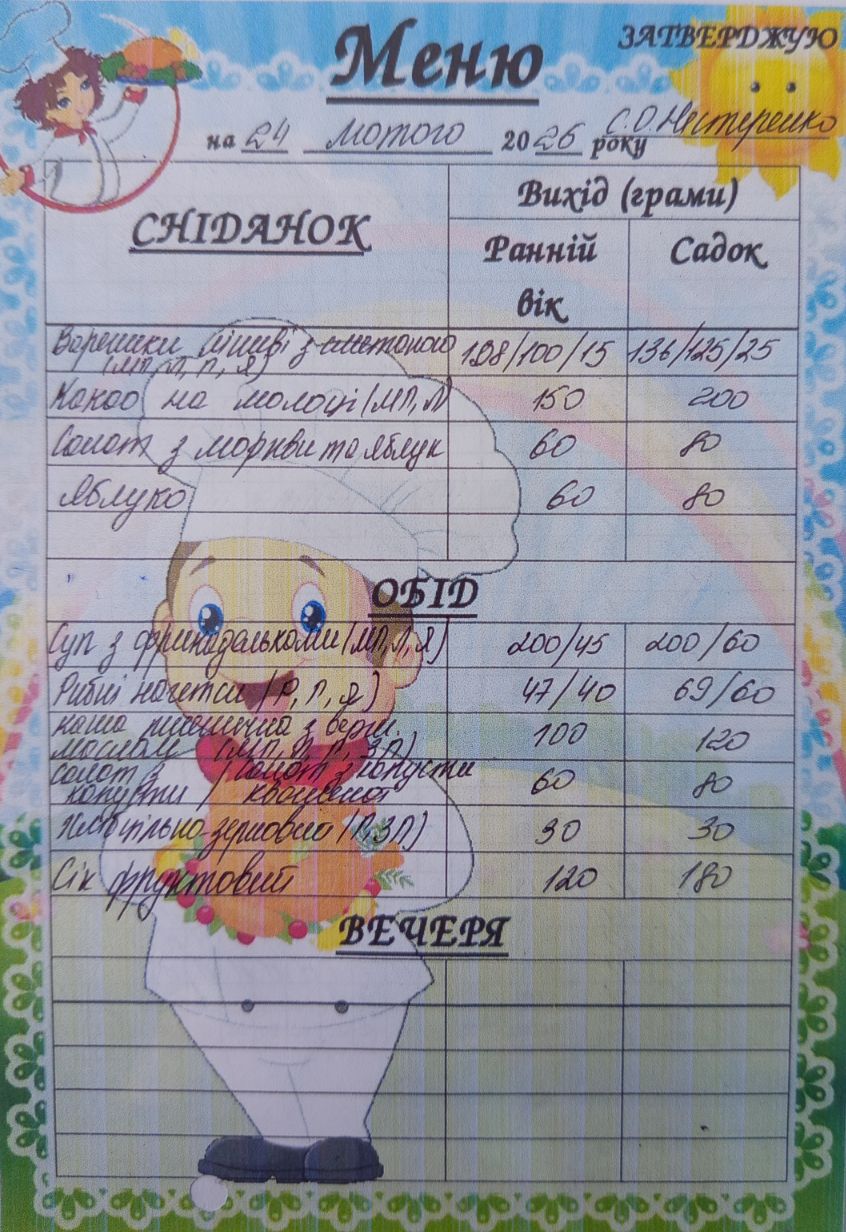 Меню
ЗАТВЕРДЖУЮ
С.О.Нестеренко
на 24 лютого 2026 року
СНІДАНОК
Вихід (грами)
Ранній вік
Садок
Вареники ліниві з сметаною 108/100/15 136/125/25
(МП, Л, Я)
Какао на молоці (МП, Л) 150 200
Салат з моркви та яблук 60 80
Яблуко 60 80
ОБІД
Суп з фрикадельками (МП, Л, Я) 200/45 200/60
Рибні нагетси (Р, П, Я) 47/40 69/60
каша пшенична з верш. 100 120
маслом
салат з / салат з капусти 60 80
капусти / квашеної
Хліб цільно-зерновий (П, ЗП) 30 30
Сік фруктовий 120 180
ВЕЧЕРЯ